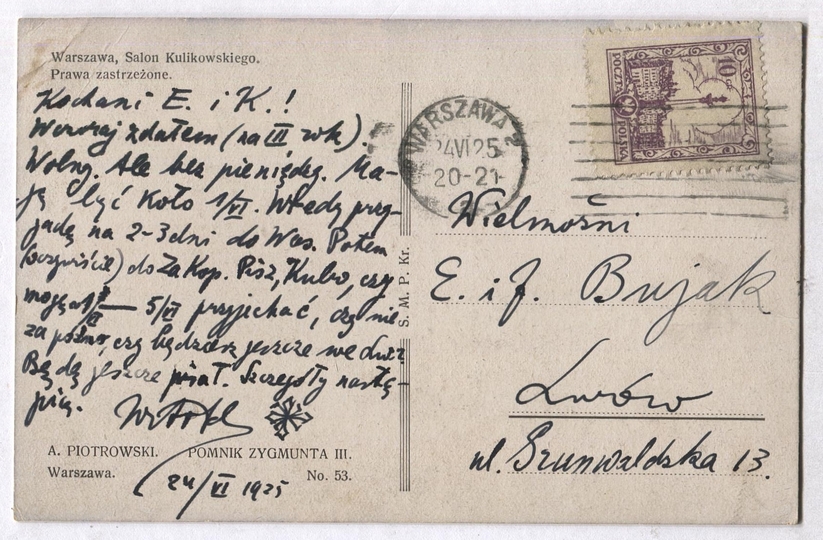 Warszawa, Salon Kulikowskiego.
Prawa zastrzeżone.
Kochani E. i K.!
Wczoraj zdałem (na III rok).
Wolny. Ale bez pieniędzy. Ma-
ją być koło 1/VI. Wtedy przy-
jadę na 2-3 dni do Was. Potem
(oczywiście) do Zakop. Pisz, Kubo, czy
mogę 5/VI przyjechać, czy nie
za późno, czy będziesz jeszcze we
Będą jeszcze pisał. Szczegóły nastą-
pią.
24/VI 1925
A. PIOTROWSKI. POMNIK ZYGMUNTA III.
Warszawa. No. 53.
S. M. P. Kr.
WARSZAWA 2
24VI25
20-21
10
POCZTA POLSKA
Wielmożni
E. i J. Bujak
Lwów
ul. Grunwaldzka 13.